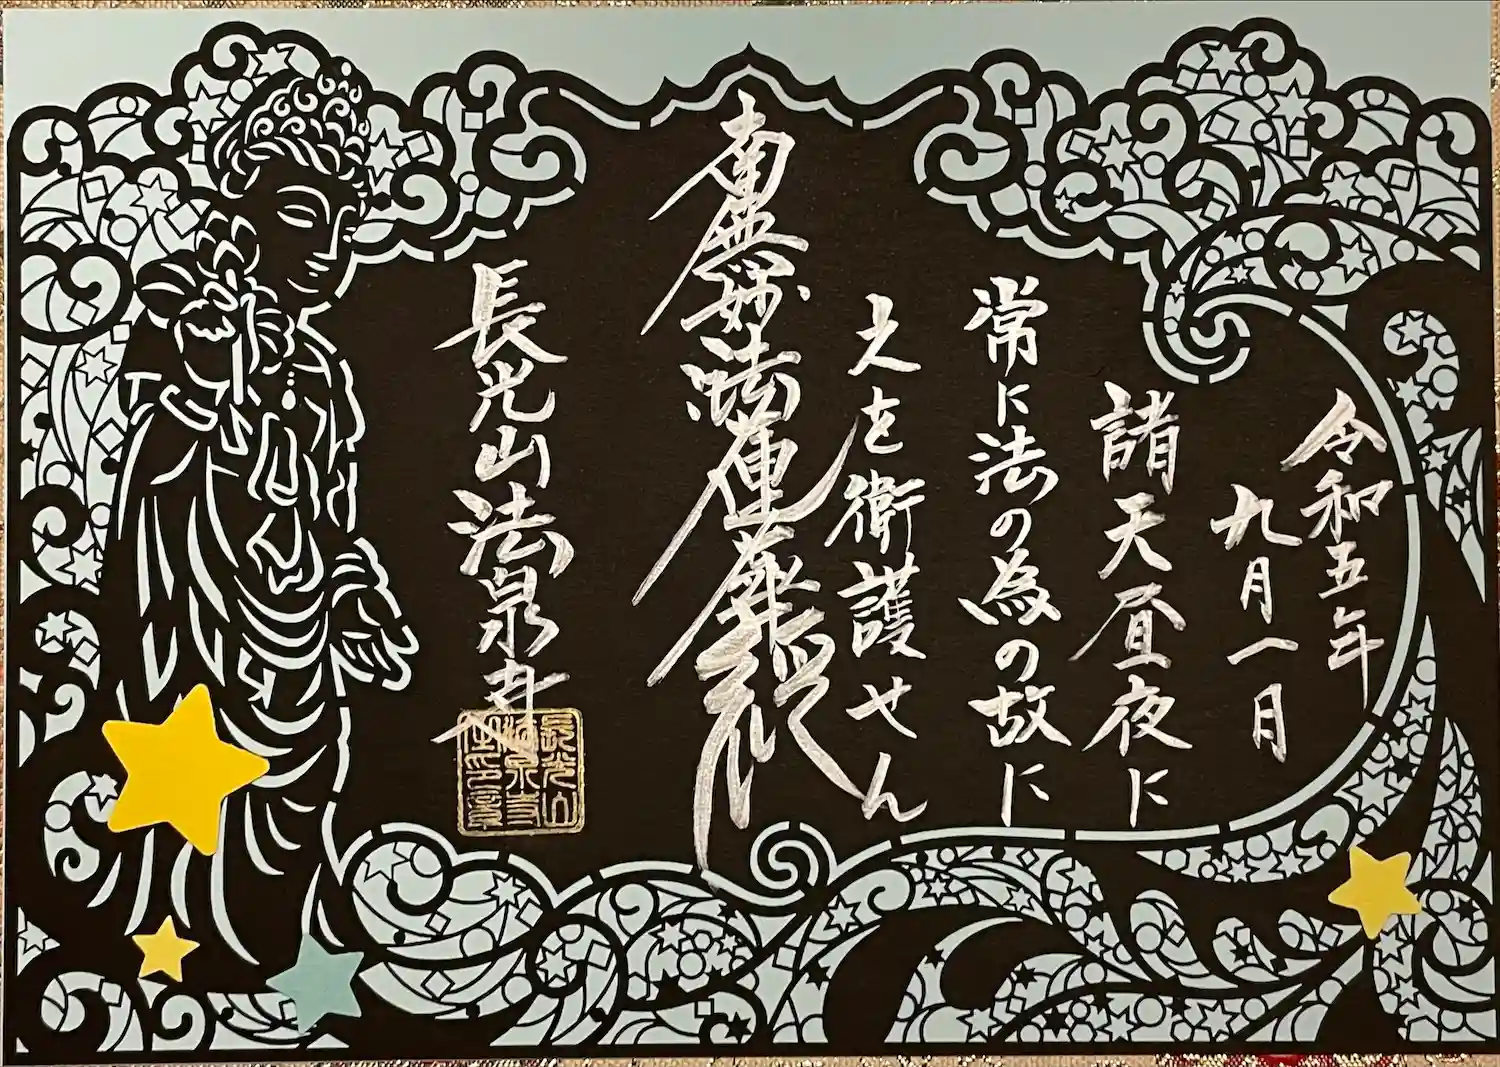 令和五年
九月一日
諸天昼夜に
常に法の為の故に
之を衛護せん
南無妙法蓮華経
長光山法泉寺
長光山
法泉寺